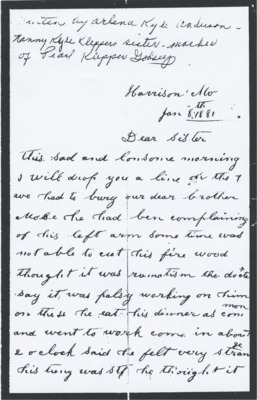 written by Arlena Kyle Anderson -
Fanny Kyle Klepper Sister - mother
of Pearl Klepper Godsey
Harrison Mo
Jan 8th, 1881
Dear Sister
This sad and lonsome morning
I will drop you a line or the 7
we had to bury our dear brother
Mose he had ben complaining
of his left arm some time was
not able to cut his fire wood
thought it was rumatism the docto
say it was palsy working on him
on the he eat his dinner as com mon
and went to work come in about
2 oclock said he felt very stran ge
his tung was stif he thought it